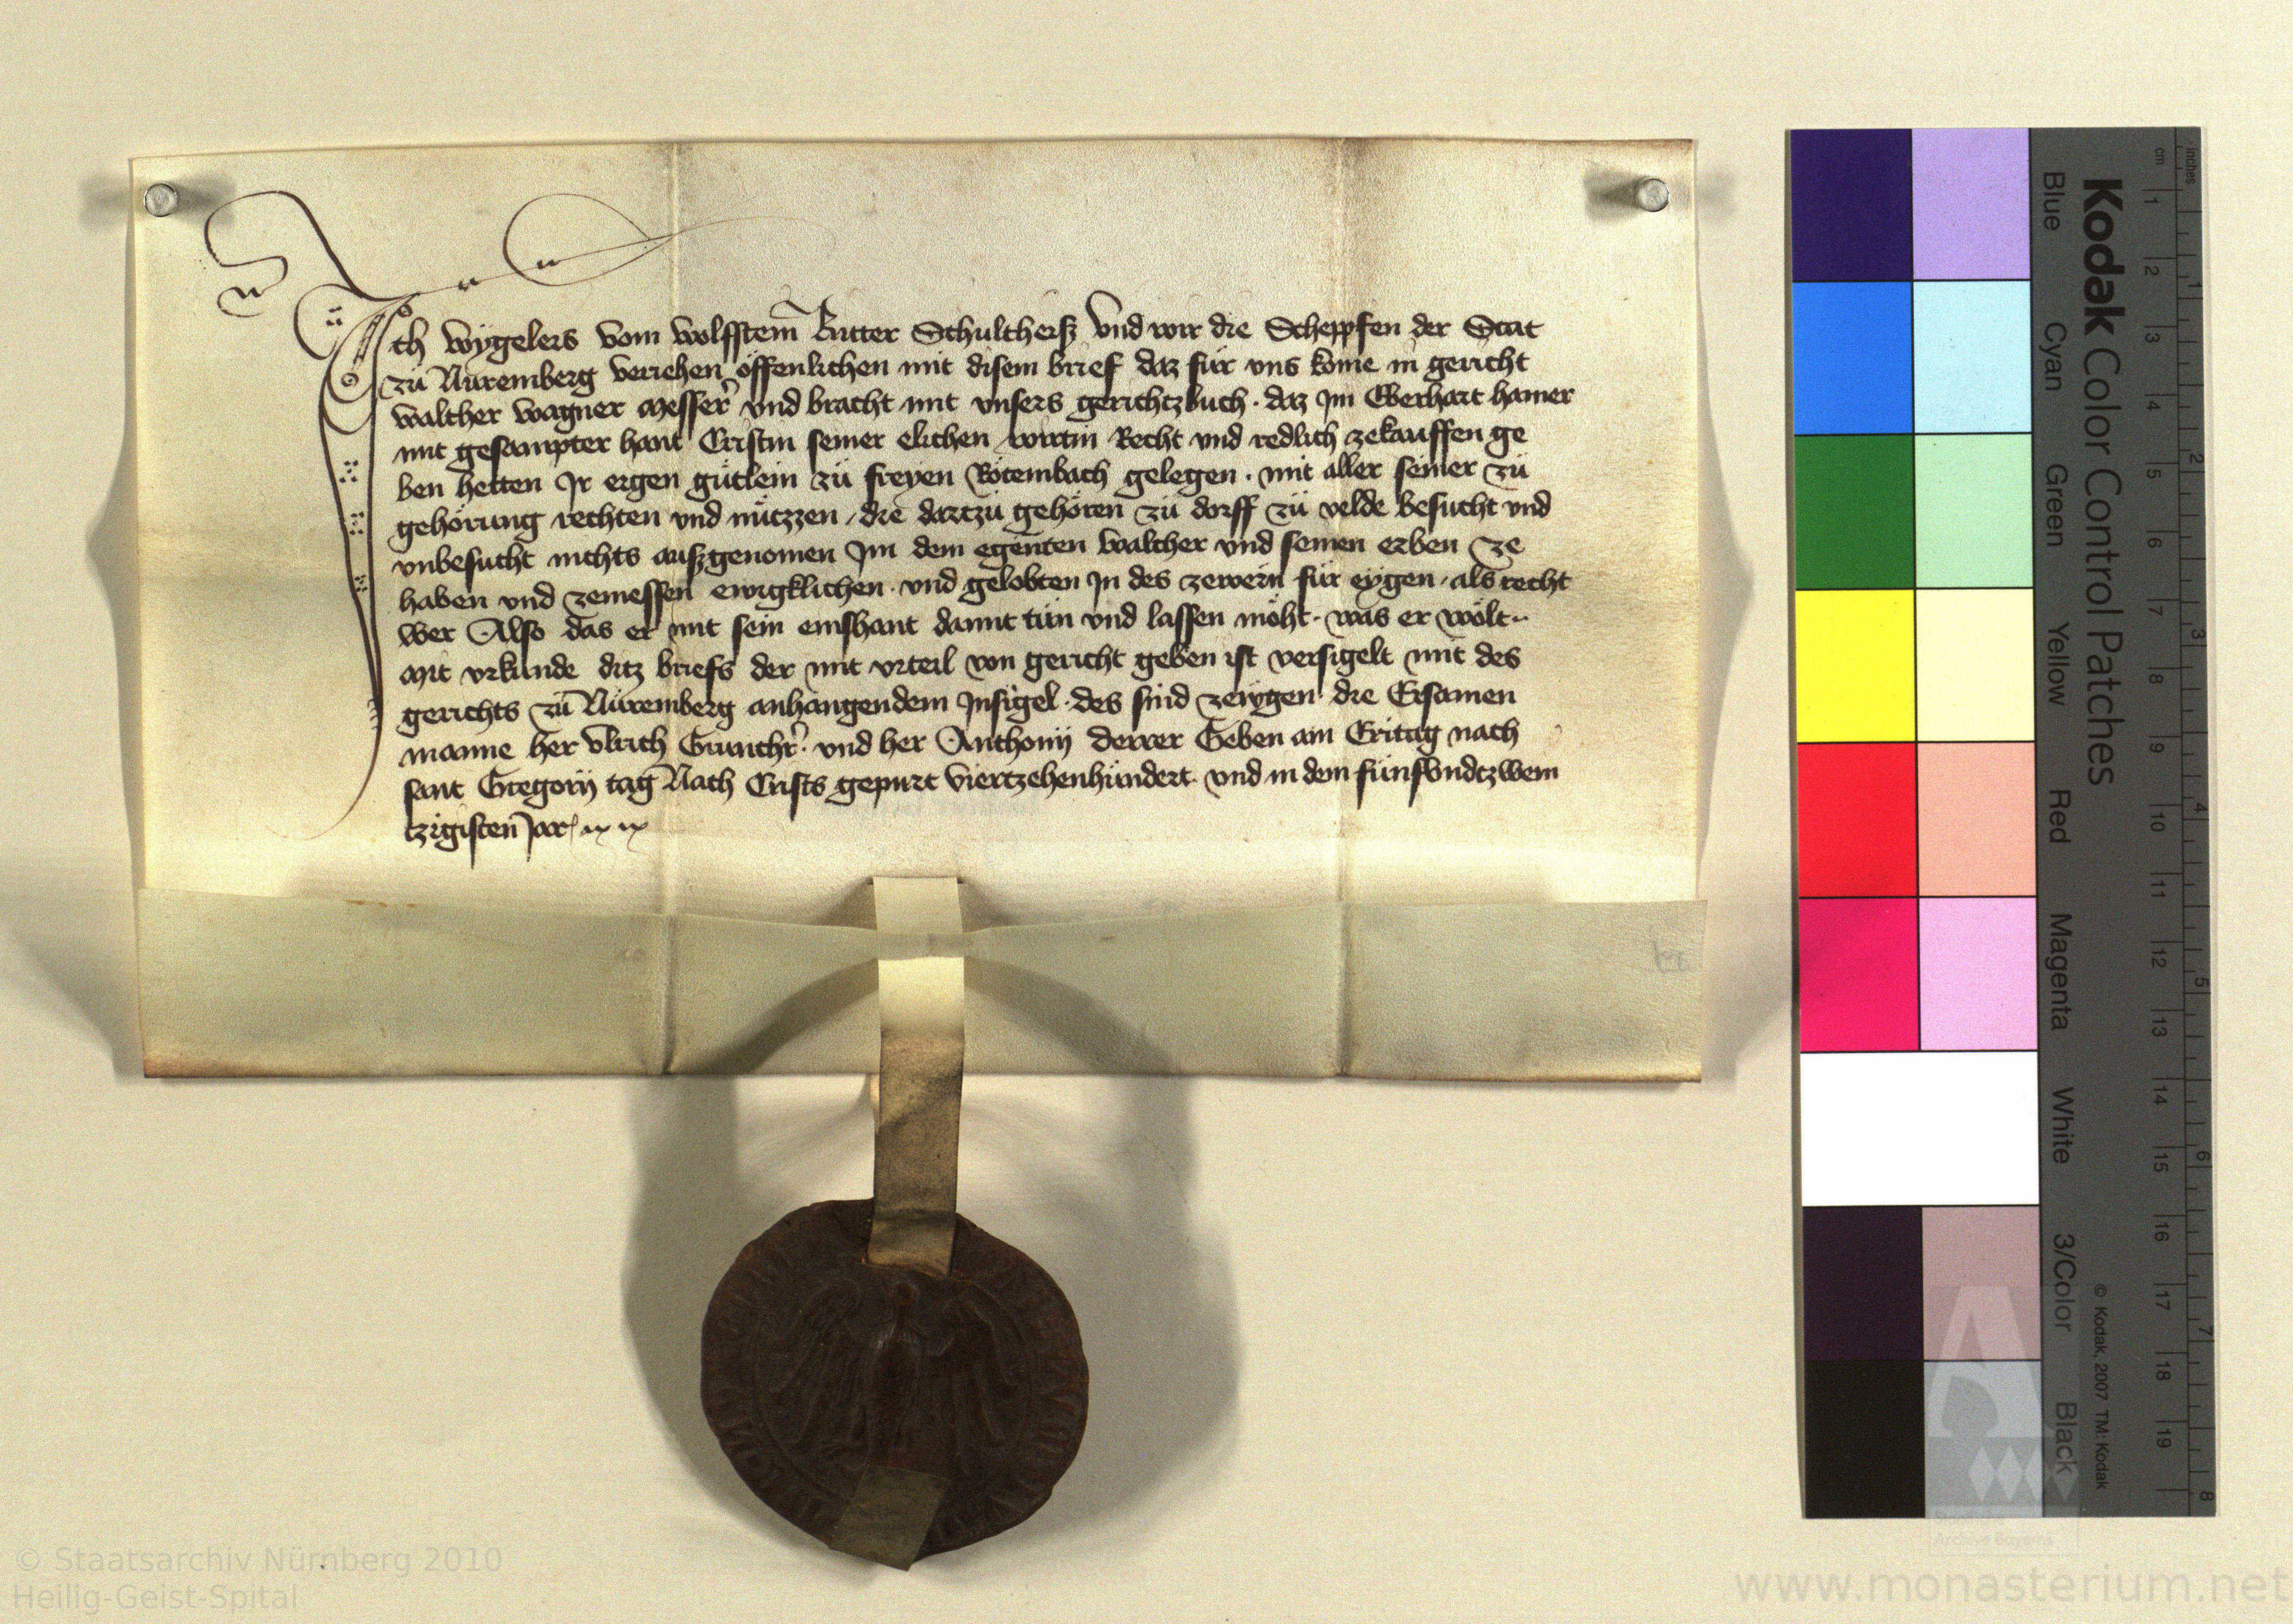 Ich Wygeleis vom Wolffstein Ritter Schultheisz Vnd wir die Schepfen der Stat
zů Nüremberg veriehen öffenlichen mit disem brief daz für vns kome in gericht
walther wagner Messer̉ vnd bracht mit vnsers gerichtzbuch · daz Im Eberhart hamer
mit gesampter hant Cristin seiner elichen wirtin Recht vnd redlich zekauffen ge
ben hetten Ir eigen gütlein zü freyen Rötembach gelegen · mit aller seiner zü
gehörung rechten vnd nützzen / die dartzü gehören zü dorff zü velde besucht vnd
vnbesucht nichts auszgenomen Im dem egenten Walther vnd seinen erben ze
haben vnd zeniessen ewigklichen · vnd gelobten In des zewern für eygen / als recht
wer Also das er mit sein einshant damit tün vnd lassen möht · was er wölt ··
Mit vrkunde ditz briefs der mit vrteil von gericht geben ist versigelt mit des
gerichts zü Nüremberg anhangendem Insigel · des sind zewgen die Ersamen
manne her Vlrich Grunthr̉ · vnd her Anthony derrer Geben am Eritag nach
sant Gregorij tag Nach Crists gepurt Viertzehenhundert vnd in dem fünfvndtzwein
tzigisten Jar
Kodak Color Control Patches
Blue
Cyan
Green
Yellow
Red
Magenta
White
3/Color
Black
© Kodak, 2007 TM: Kodak
cm 1 2 3 4 5 6 7 8 9 10 11 12 13 14 15 16 17 18 19
inches 1 2 3 4 5 6 7 8
© Staatsarchiv Nürnberg 2010
Heilig-Geist-Spital
www.monasterium.net